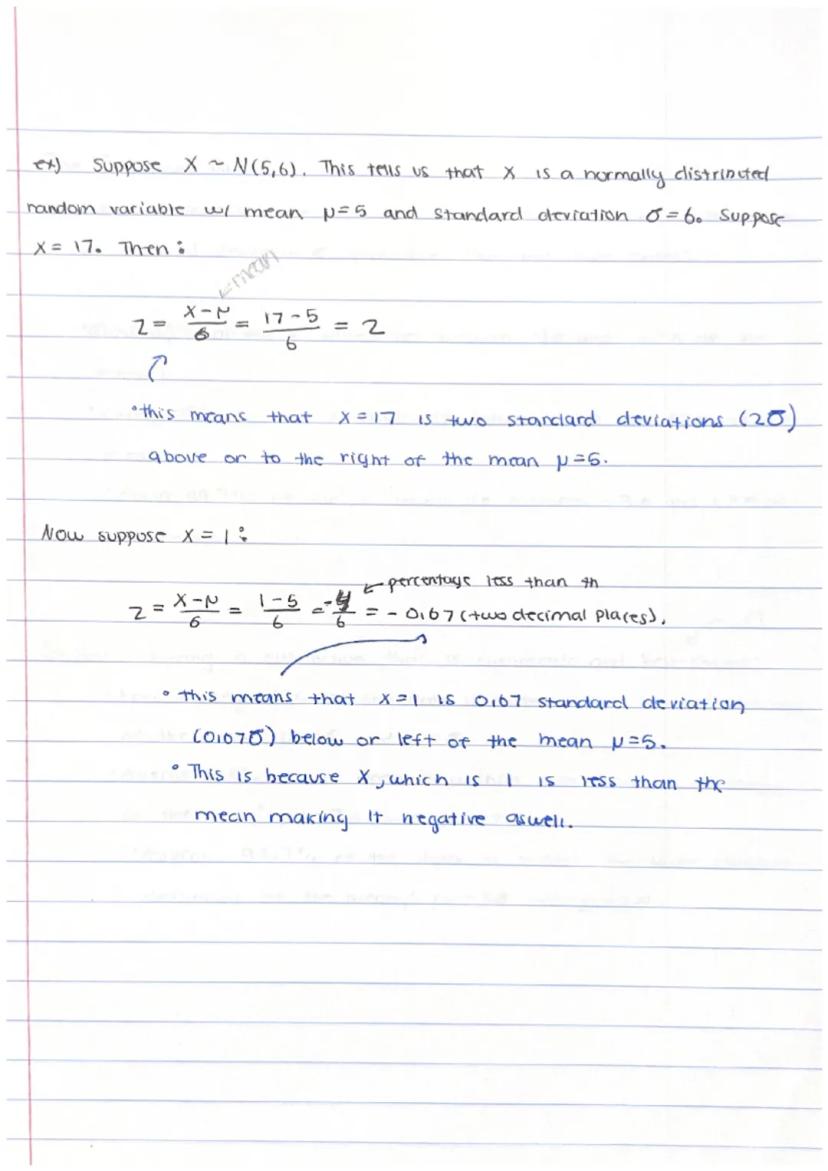 ex) Suppose X ~ N(5,6). This tells us that X is a normally distributed
random variable w/ mean μ=5 and standard deviation σ=6. Suppose
X = 17. Then:
←mean
z = X-μ/6 = 17-5/6 = 2
•this means that X=17 is two standard deviations (2σ)
above or to the right of the mean μ=5.
Now suppose X = 1:
← percentage less than th
z = X-μ/6 = 1-5/6 = -4/6 = -0.67 (two decimal places).
• this means that X=1 is 0.67 standard deviation
(0.67σ) below or left of the mean μ=5.
• This is because X, which is 1 is less than the
mean making it negative aswell.